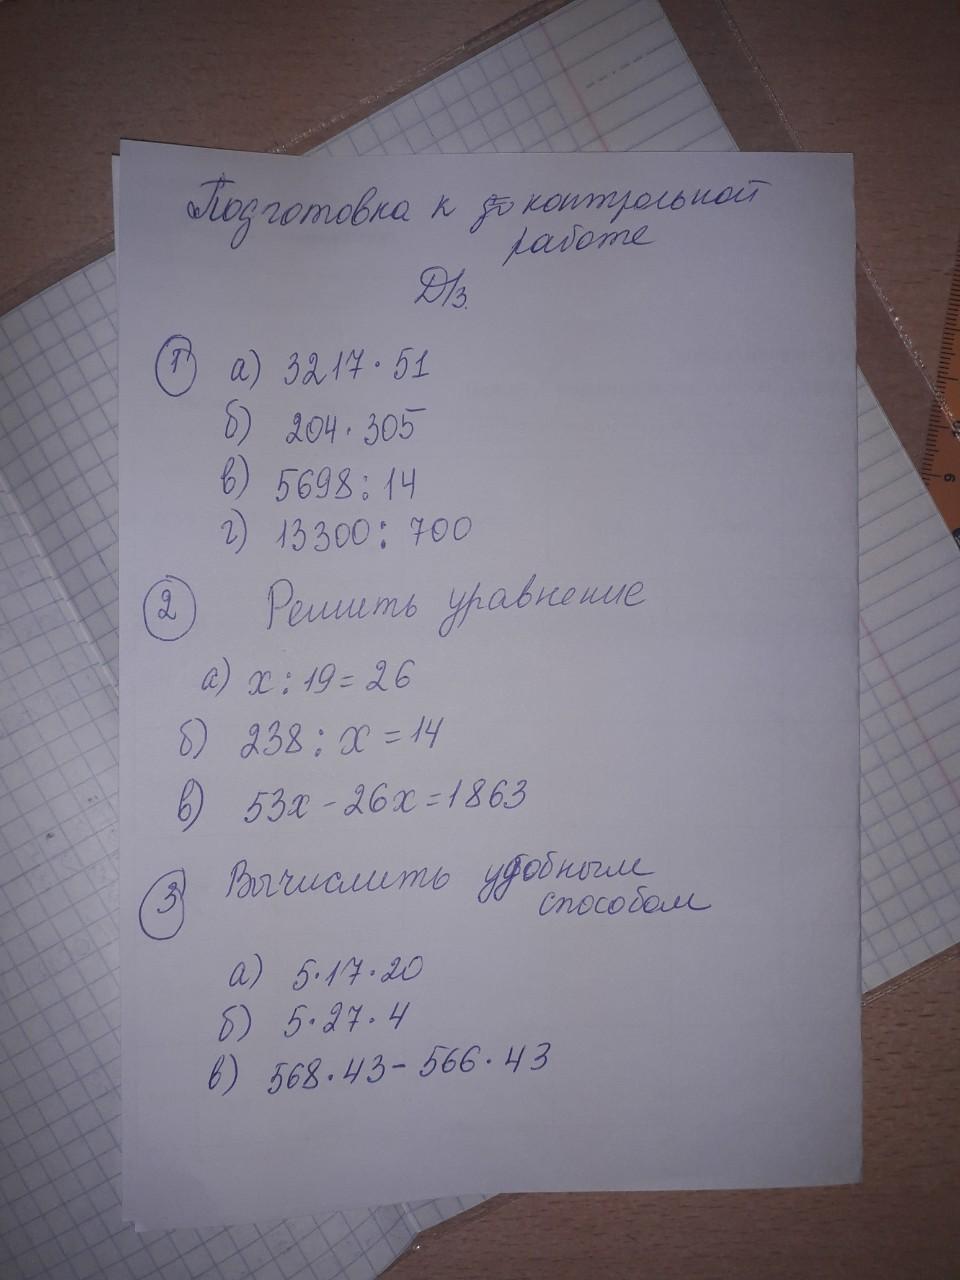 Подготовка к контрольной
работе
Д/з.
1 а) 3217 · 51
б) 204 · 305
в) 5698 : 14
г) 13300 : 700
2 Решить уравнение
а) x : 19 = 26
б) 238 : x = 14
в) 53x - 26x = 1863
3 Вычислить удобным
способом
а) 5 · 17 · 20
б) 5 · 27 · 4
в) 568 · 43 - 566 · 43